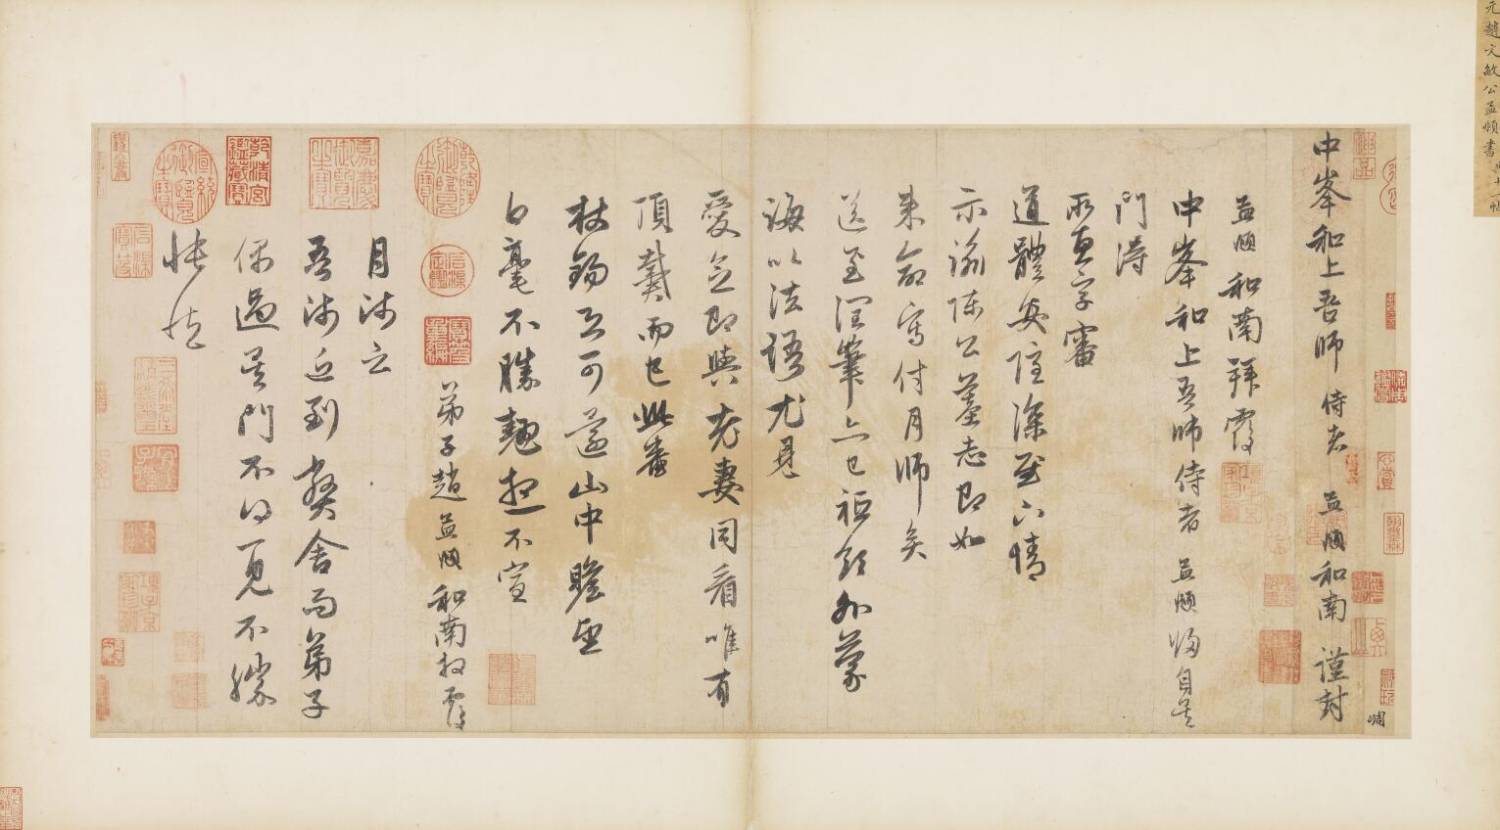 元趙文敏公孟頫書
中峯和上吾師 侍者 孟頫和南 謹封
孟頫和南拜覆
中峯和上吾師侍者孟頫歸自吳
門得
所惠字審
道體安隱深慰下情
示諭陳公墓志即如
來命寫付月師矣
送至潤筆亦已祗領外蒙
誨以法語尤見
愛念即與老妻同看唯有
頂戴而已此番
杖錫又可還山中瞻望
白毫不勝翹想不宣
弟子趙孟頫和南拜覆
月師云
吾師近到弊舍而弟子
偶過吳門不得一見不勝
悵恨